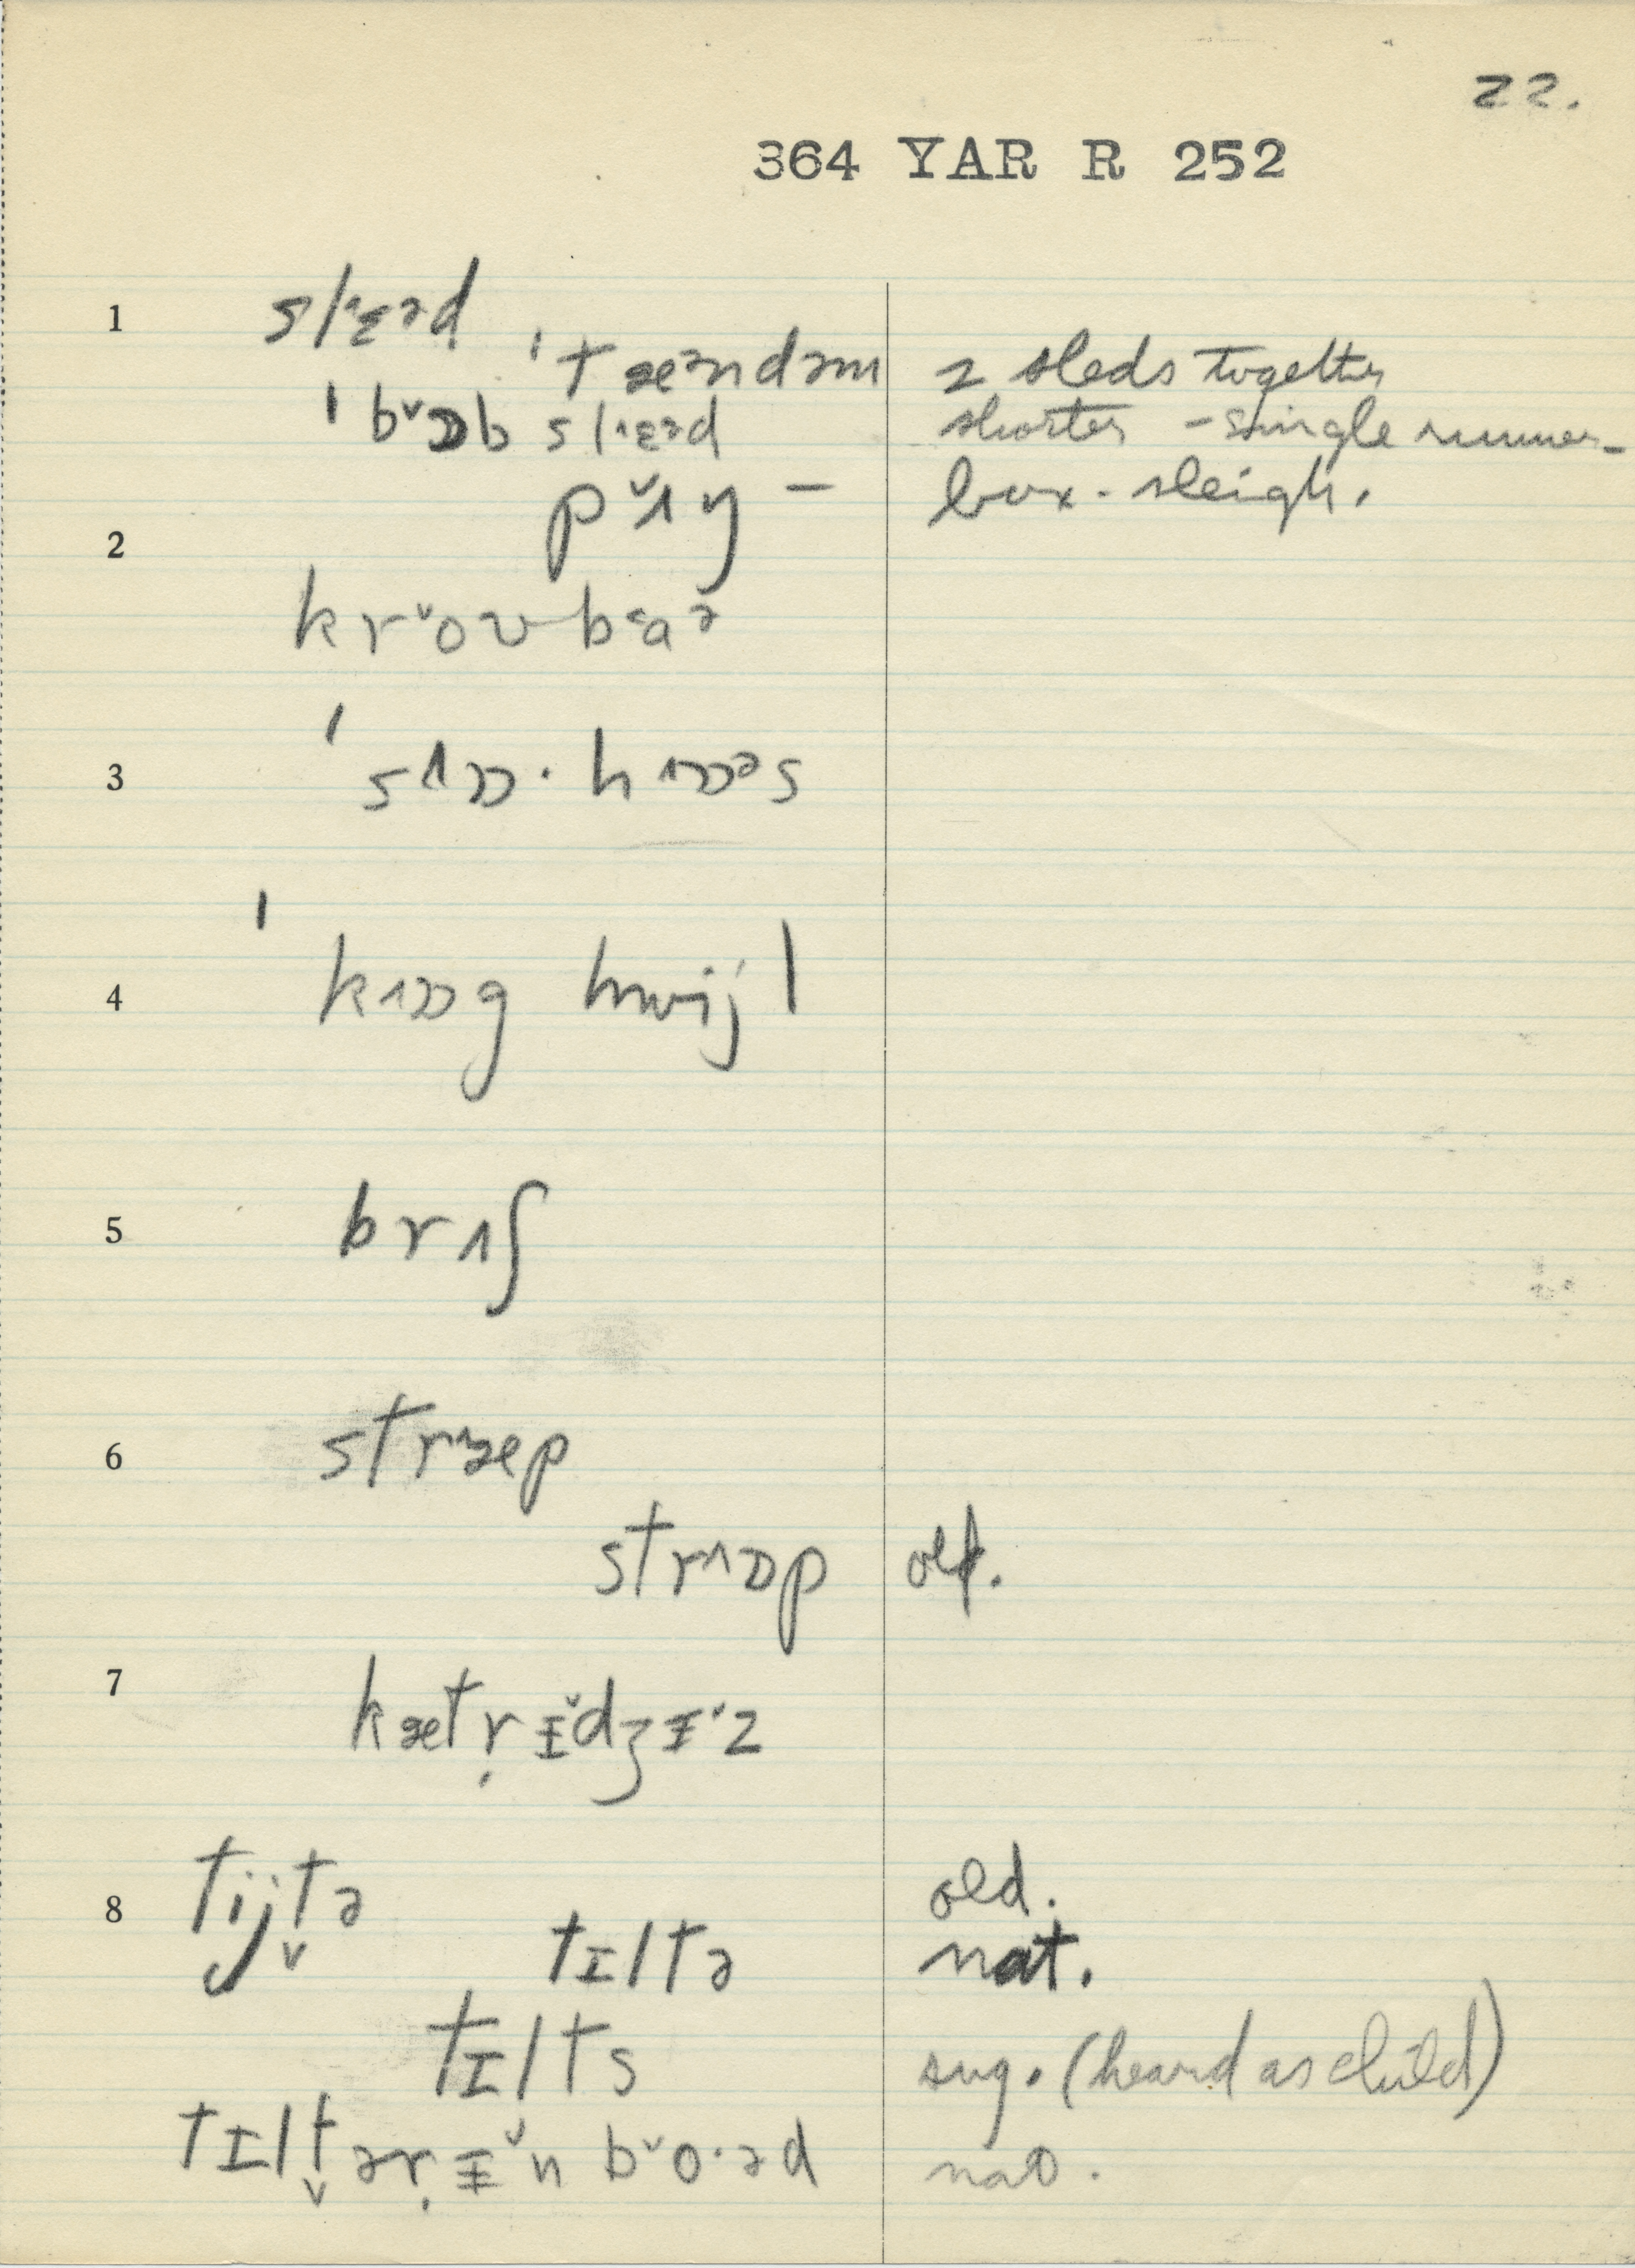 22.
364 YAR R 252
1 sl˄ɛəd
ˈtæəndəm 2 sleds together
ˈb˅ɒb sl˄ɛəd shorter – single runner –
p˅ʌŋ – box-sleigh.
2
kr˅oʊ b˂aə
3 ˈs˄ɒ·h˄ɒəs
4 ˈk˄ɒg hwijl
5 brʌʃ
6 str˄æp
str˄ɒp old.
7 kætṛɪ̵˅dʒɪ̵˅z
8 tijt̬ə old.
tɪltə nat.
tɪlts sug. (heard as child)
tɪlt̬əṛɪ̵˅n b˅o·əd nat.